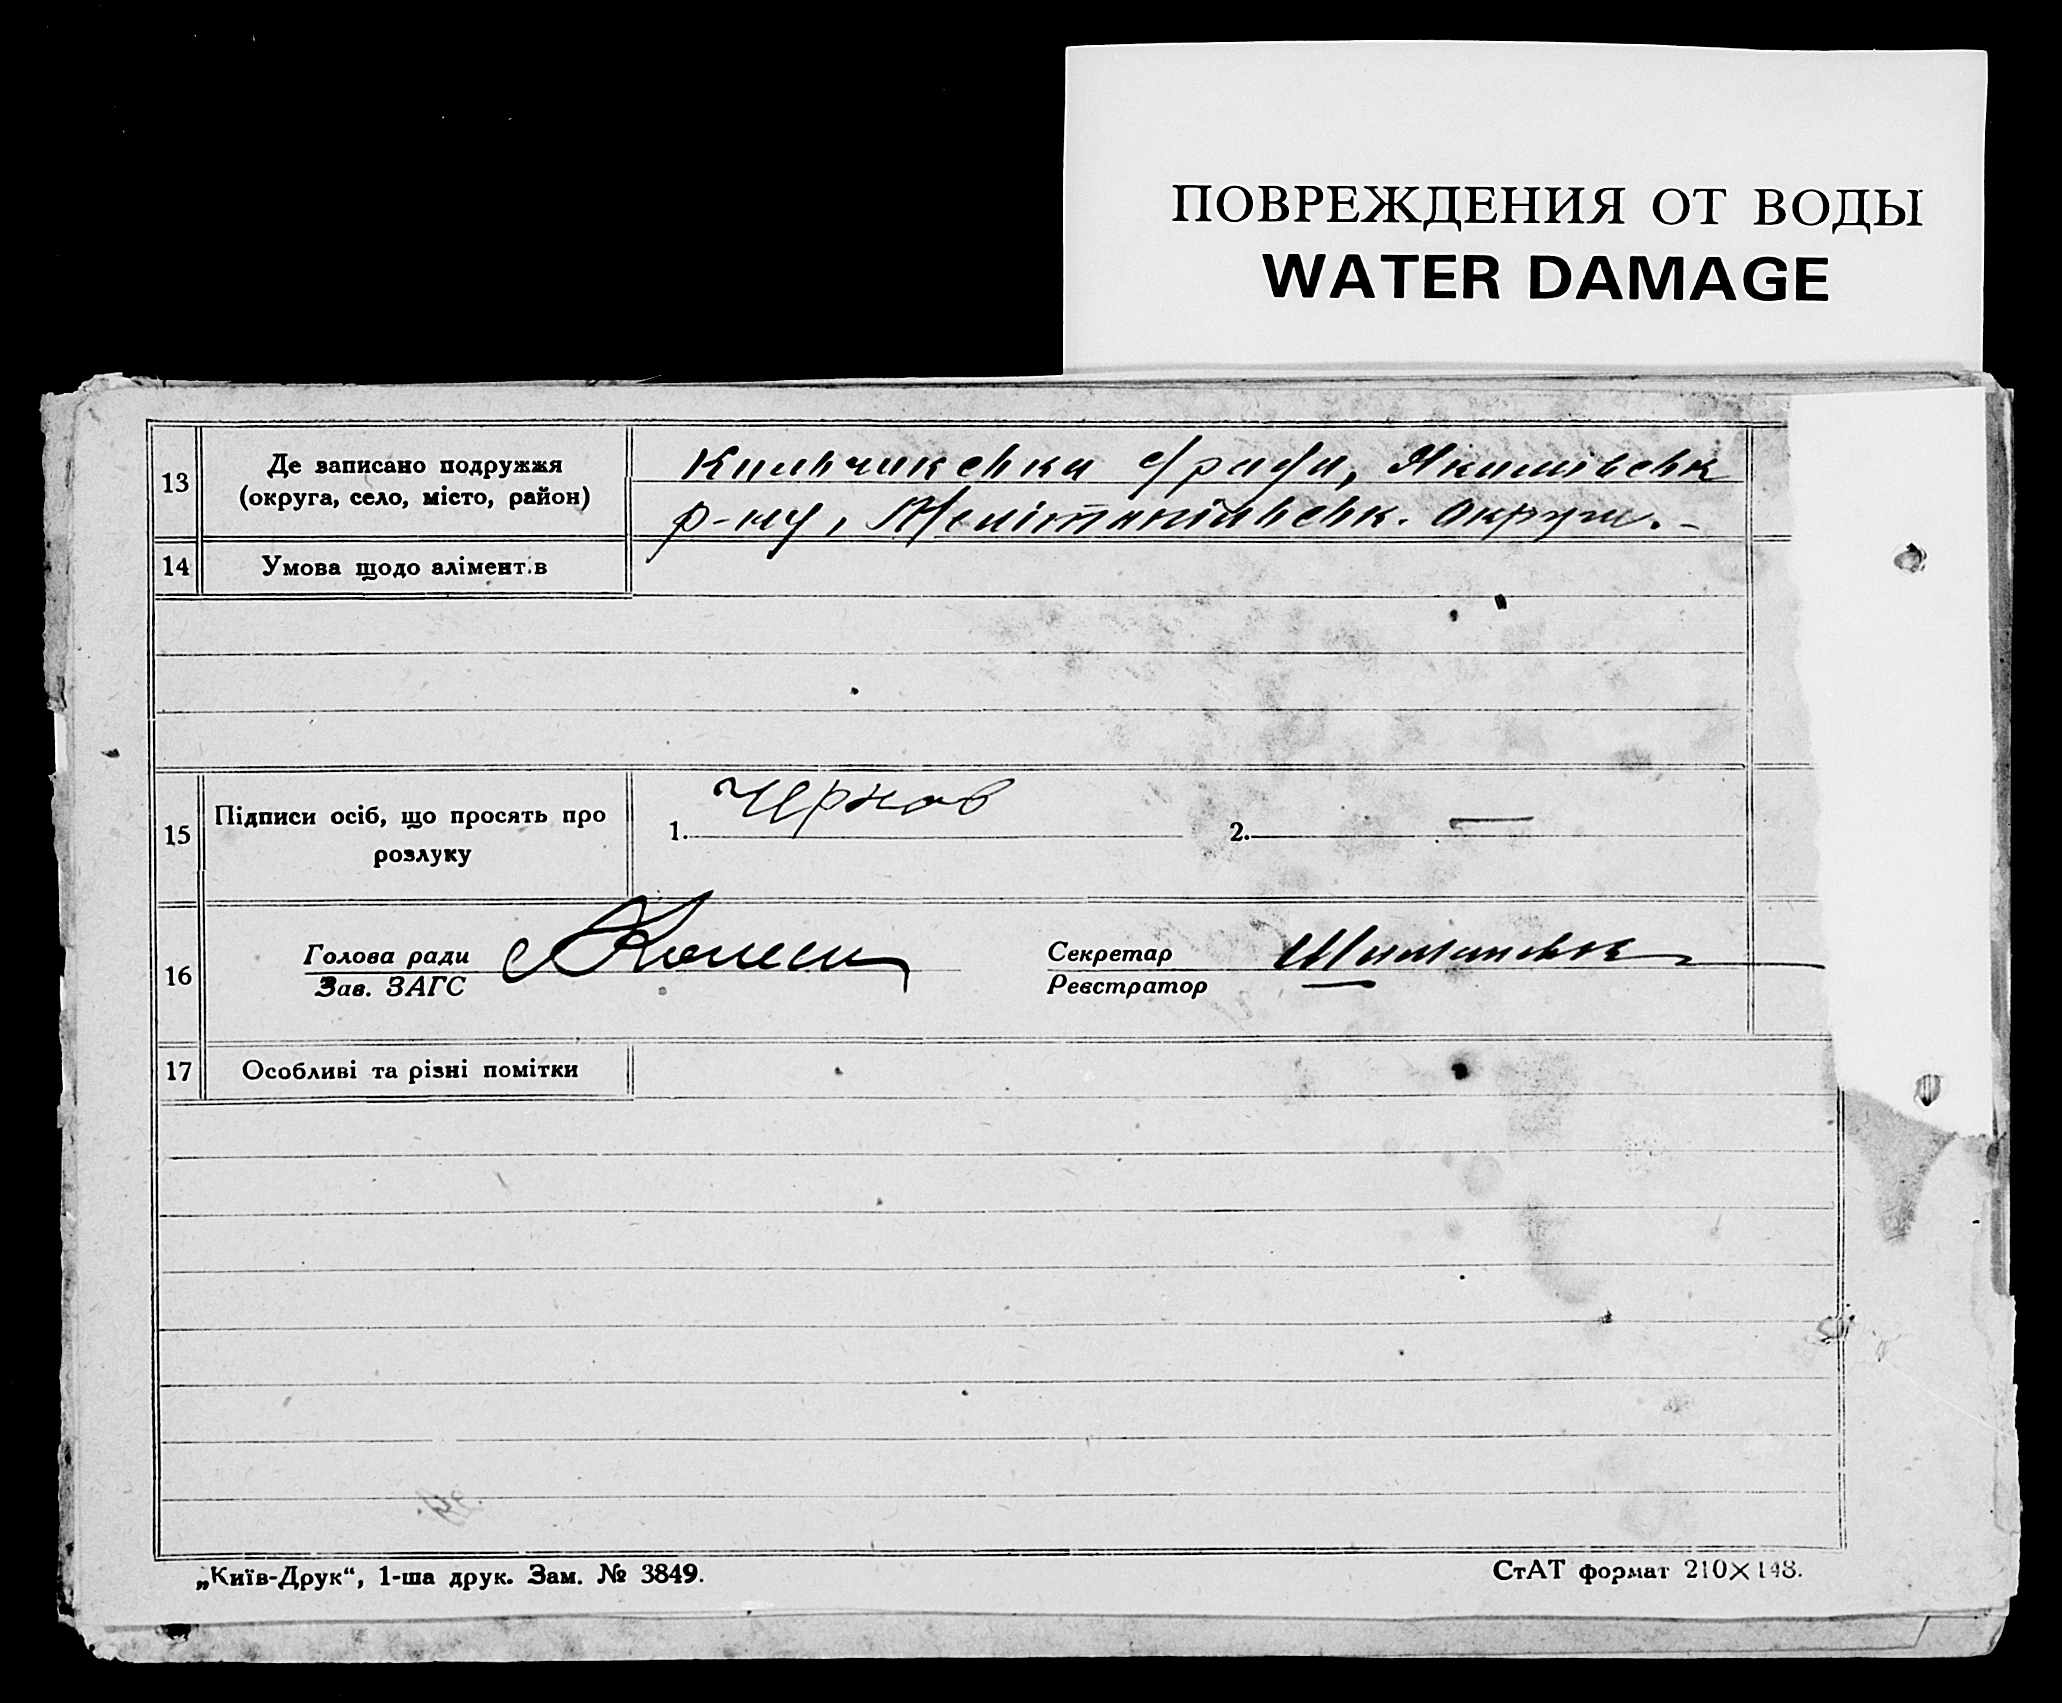 ПОВРЕЖДЕНИЯ ОТ ВОДЫ
WATER DAMAGE
13
Де записано подружжя
(округа, село, місто, район)
с/рада, Якимівськ
р-ну, Мелітопільськ. округи.-
14
Умова щодо алімент.в
15
Підписи осіб, що просять про
розлуку
1. Чернов
2. —
16
Голова ради
Зав. ЗАГС
Секретар
Реєстратор
17
Особливі та різні помітки
„Київ-Друк“, 1-ша друк. Зам. № 3849.
СтАТ формат 210×148.